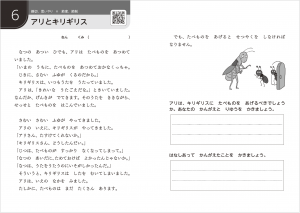 6
アリとキリギリス
ねん　くみ（　　　）
なつの　あつい　ひでも、アリは　たべものを　あつめて
いました。
「いまの　うちに、たべものを　あつめておかなくっちゃ。
じきに、さむい　ふゆが　くるのだから。」
キリギリスは、いつもうたを　うたっていました。
「アリは、
なんだか、げんきが　でてきます。そのうたを　ききながら、
せっせと　たべものを　はこんでいました。
さむい　さむい　ふゆが　やってきました。
アリの　いえに、キリギリスが　やってきました。
「アリさん、たすけてくれないか。」
「キリギリスさん、どうしたんだい。」
「じつは、たべものが　すっかり　なくなってしまって。」
「なつの　あいだに、ためておけば　よかったんじゃないか。」
「なつは、うたをうたうのにいそがしかったんだ。」
そういうと、キリギリスは　したを　むいてしまいました。
アリは、いえの　なかを　みました。
たしかに、たべものは　まだ　たくさん　あります。
でも、たべものを　あげると　せっやくを　しなければ
なりません。
アリは、キリギリスに　たべものを　あげるべきでしょう
か。あなたの　かんがえと　りゆうを　かきましょう。
はなしあって　かんがえたことを　かきましょう。